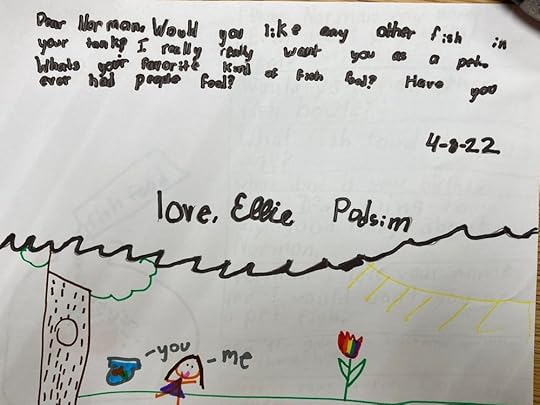 Dear Norman, Would you like any other fish in
your tank? I really really want you as a pet.
Whats your favorite kind of fish food? Have you
ever had people food?
4-8-22
love, Ellie Podsim
-you
-me